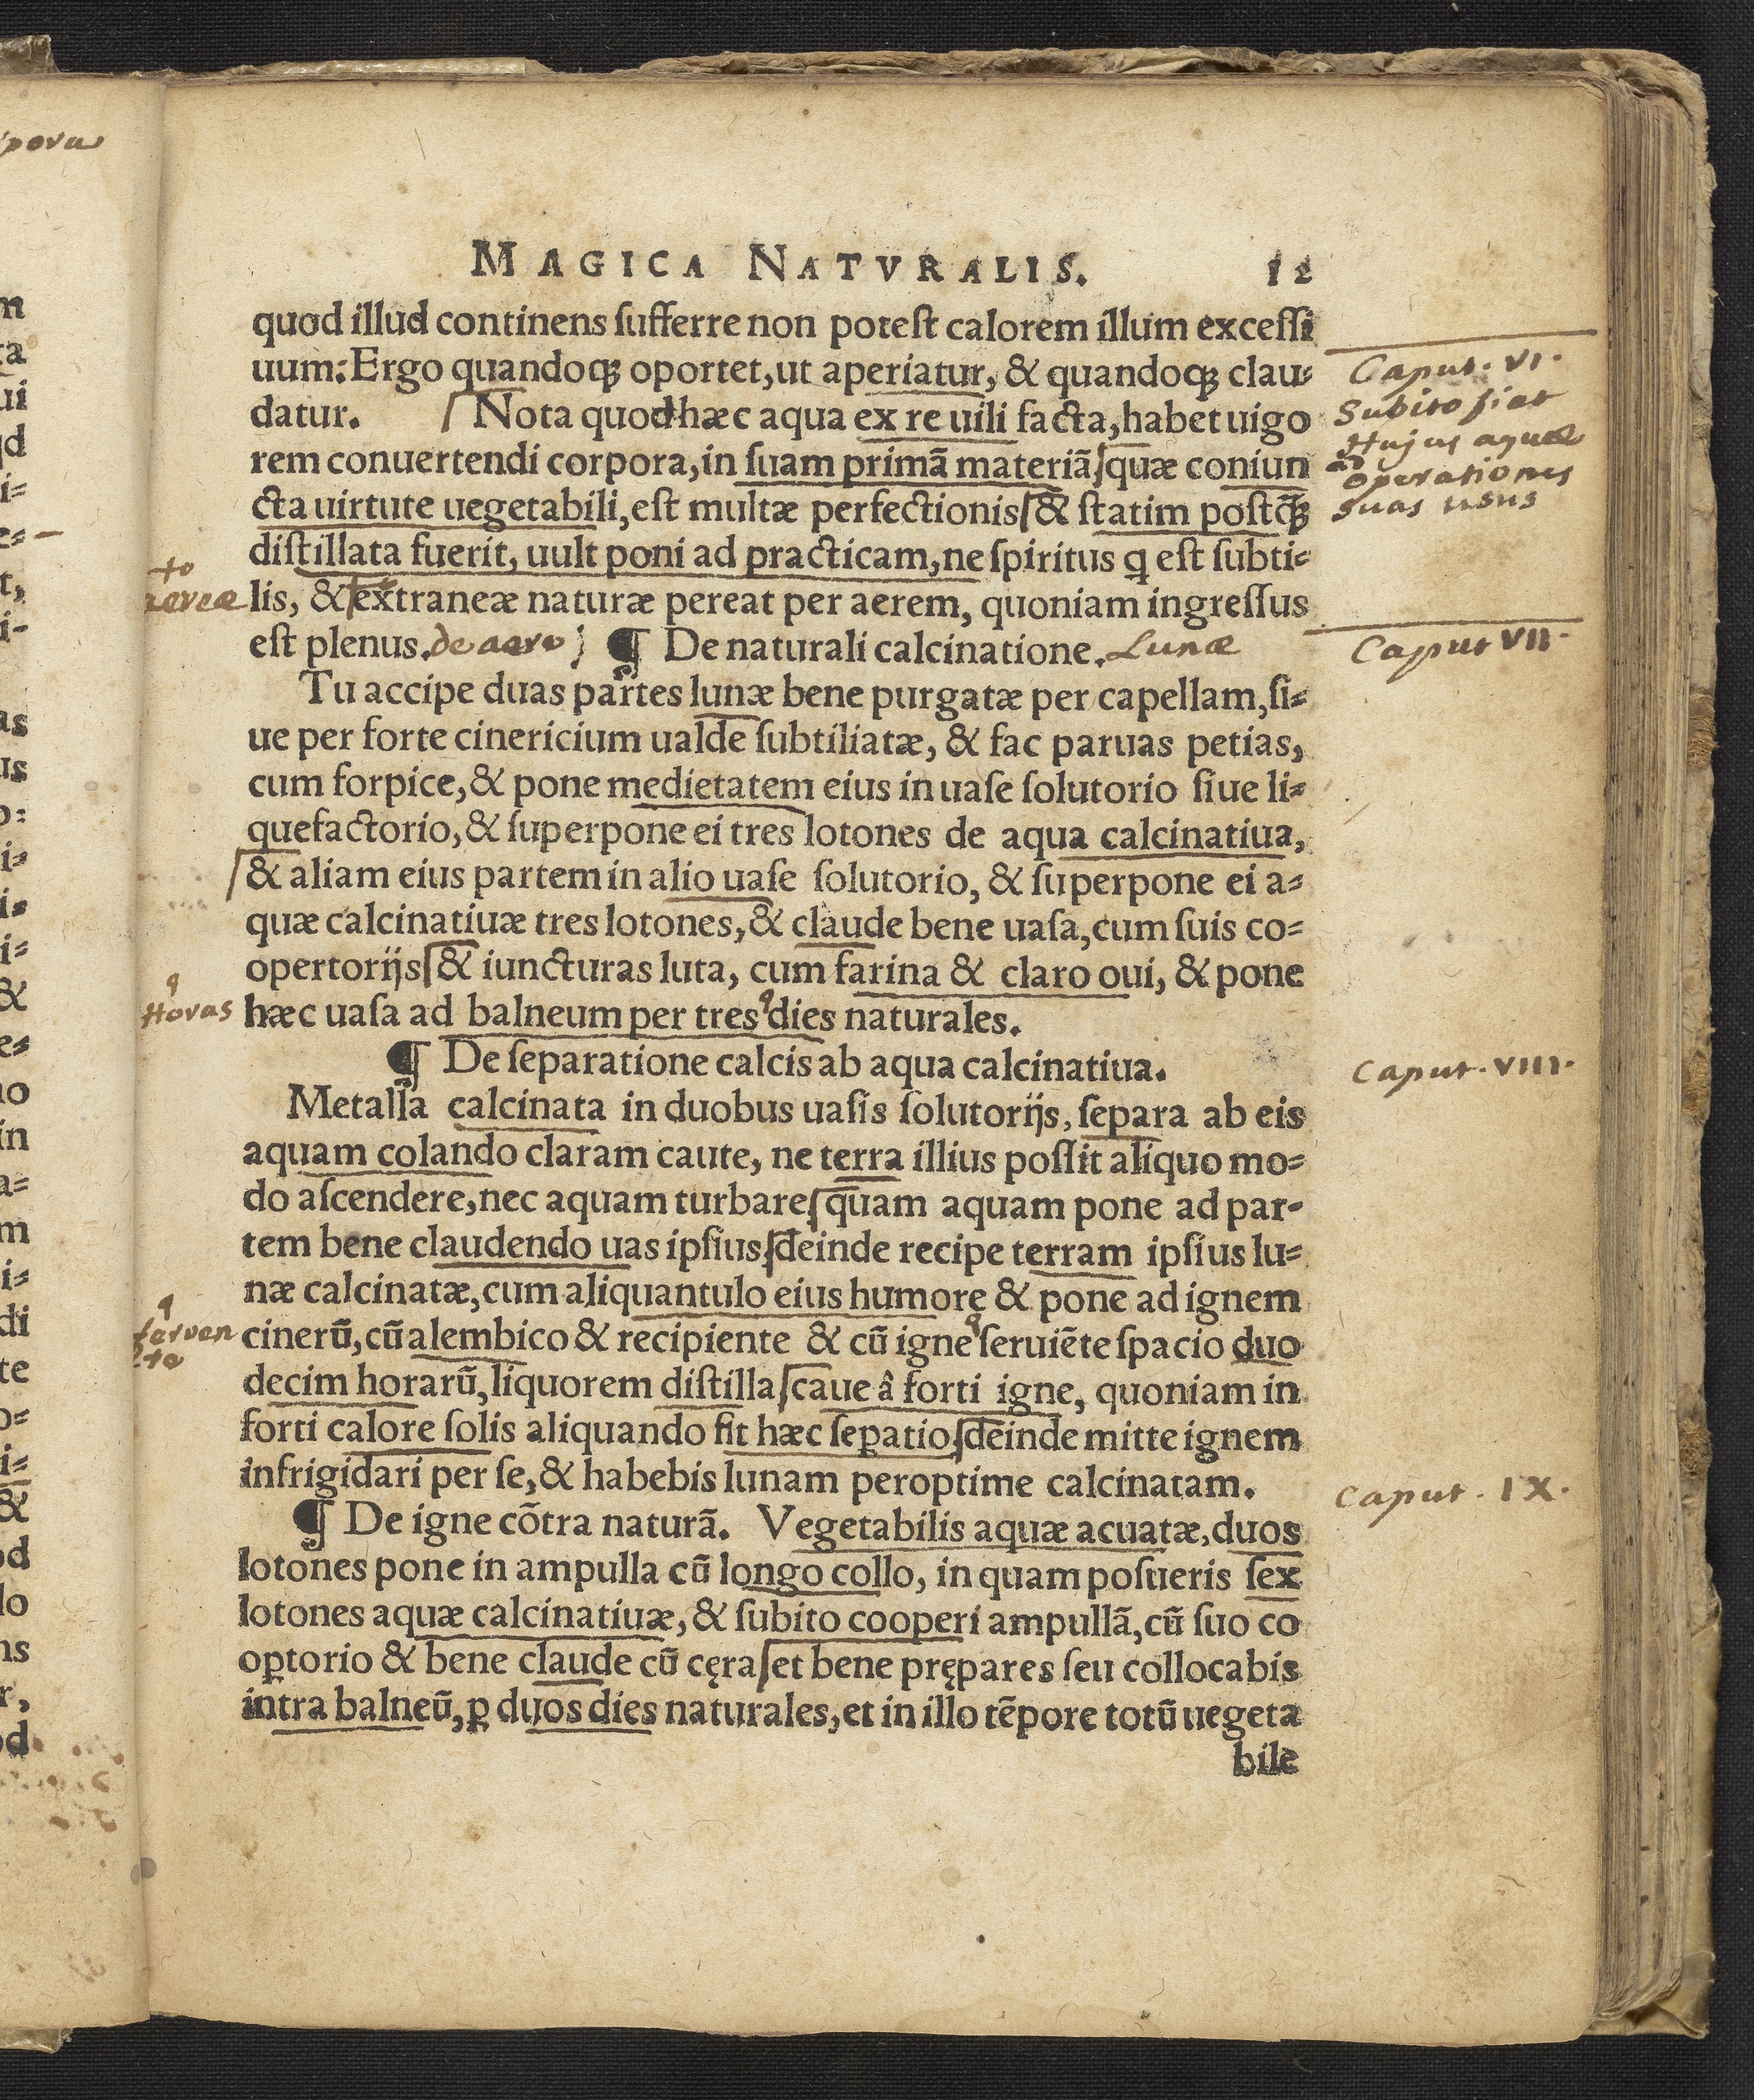 MAGICA NATVRALIS. 12
quod illud continens ſufferre non poteſt calorem illum exceſſi
uum: Ergo quandoqꝫ oportet, ut aperiatur, & quandoqꝫ clau⸗
datur. Nota quod hæc aqua ex re uili facta, habet uigo
rem conuertendi corpora, in ſuam primã materiã, quæ coniun
cta uirtute uegetabili, eſt multæ perfectionis, & ſtatim poſtq̃ꝫ
diſtillata fuerit, uult poni ad practicam, ne ſpiritus q eſt ſubti⸗
lis, & extraneæ naturæ pereat per aerem, quoniam ingreſſus
eſt plenus. de aere ¶ De naturali calcinatione. Lunæ
Tu accipe duas partes lunæ bene purgatæ per capellam, ſi⸗
ue per forte cinericium ualde ſubtiliatæ, & fac paruas petias,
cum forpice, & pone medietatem eius in uaſe ſolutorio ſiue li⸗
quefactorio, & ſuperpone ei tres lotones de aqua calcinatiua,
& aliam eius partem in alio uaſe ſolutorio, & ſuperpone ei a⸗
quæ calcinatiuæ tres lotones, & claude bene uaſa, cum ſuis co⸗
opertorijs, & iuncturas luta, cum farina & claro oui, & pone
hæc uaſa ad balneum per tres dies naturales.
¶ De ſeparatione calcis ab aqua calcinatiua.
Metalla calcinata in duobus uaſis ſolutorijs, ſepara ab eis
aquam colando claram caute, ne terra illius poſſit aliquo mo⸗
do aſcendere, nec aquam turbare, quam aquam pone ad par⸗
tem bene claudendo uas ipſius, deinde recipe terram ipſius lu⸗
næ calcinatæ, cum aliquantulo eius humore & pone ad ignem
cinerũ, cũ alembico & recipiente & cũ igne ſeruiẽte ſpacio duo
decim horarũ, liquorem diſtilla, caue â forti igne, quoniam in
forti calore ſolis aliquando fit hæc ſeꝑatio, deinde mitte ignem
infrigidari per ſe, & habebis lunam peroptime calcinatam.
¶ De igne cõtra naturã. Vegetabilis aquæ acuatæ, duos
lotones pone in ampulla cũ longo collo, in quam poſueris ſex
lotones aquæ calcinatiuæ, & ſubito cooperi ampullã, cũ ſuo co
oꝑtorio & bene claude cũ cęra, et bene prępares ſeu collocabis
intra balneũ, ꝑ duos dies naturales, et in illo tẽpore totũ uegeta
bile
Caput. VI.
Subito fiat
Hujus aquæ
ad operationes
suas usus
Caput VII.
Caput. VIII.
Caput. IX.
aereæ
Horas
ferven
te